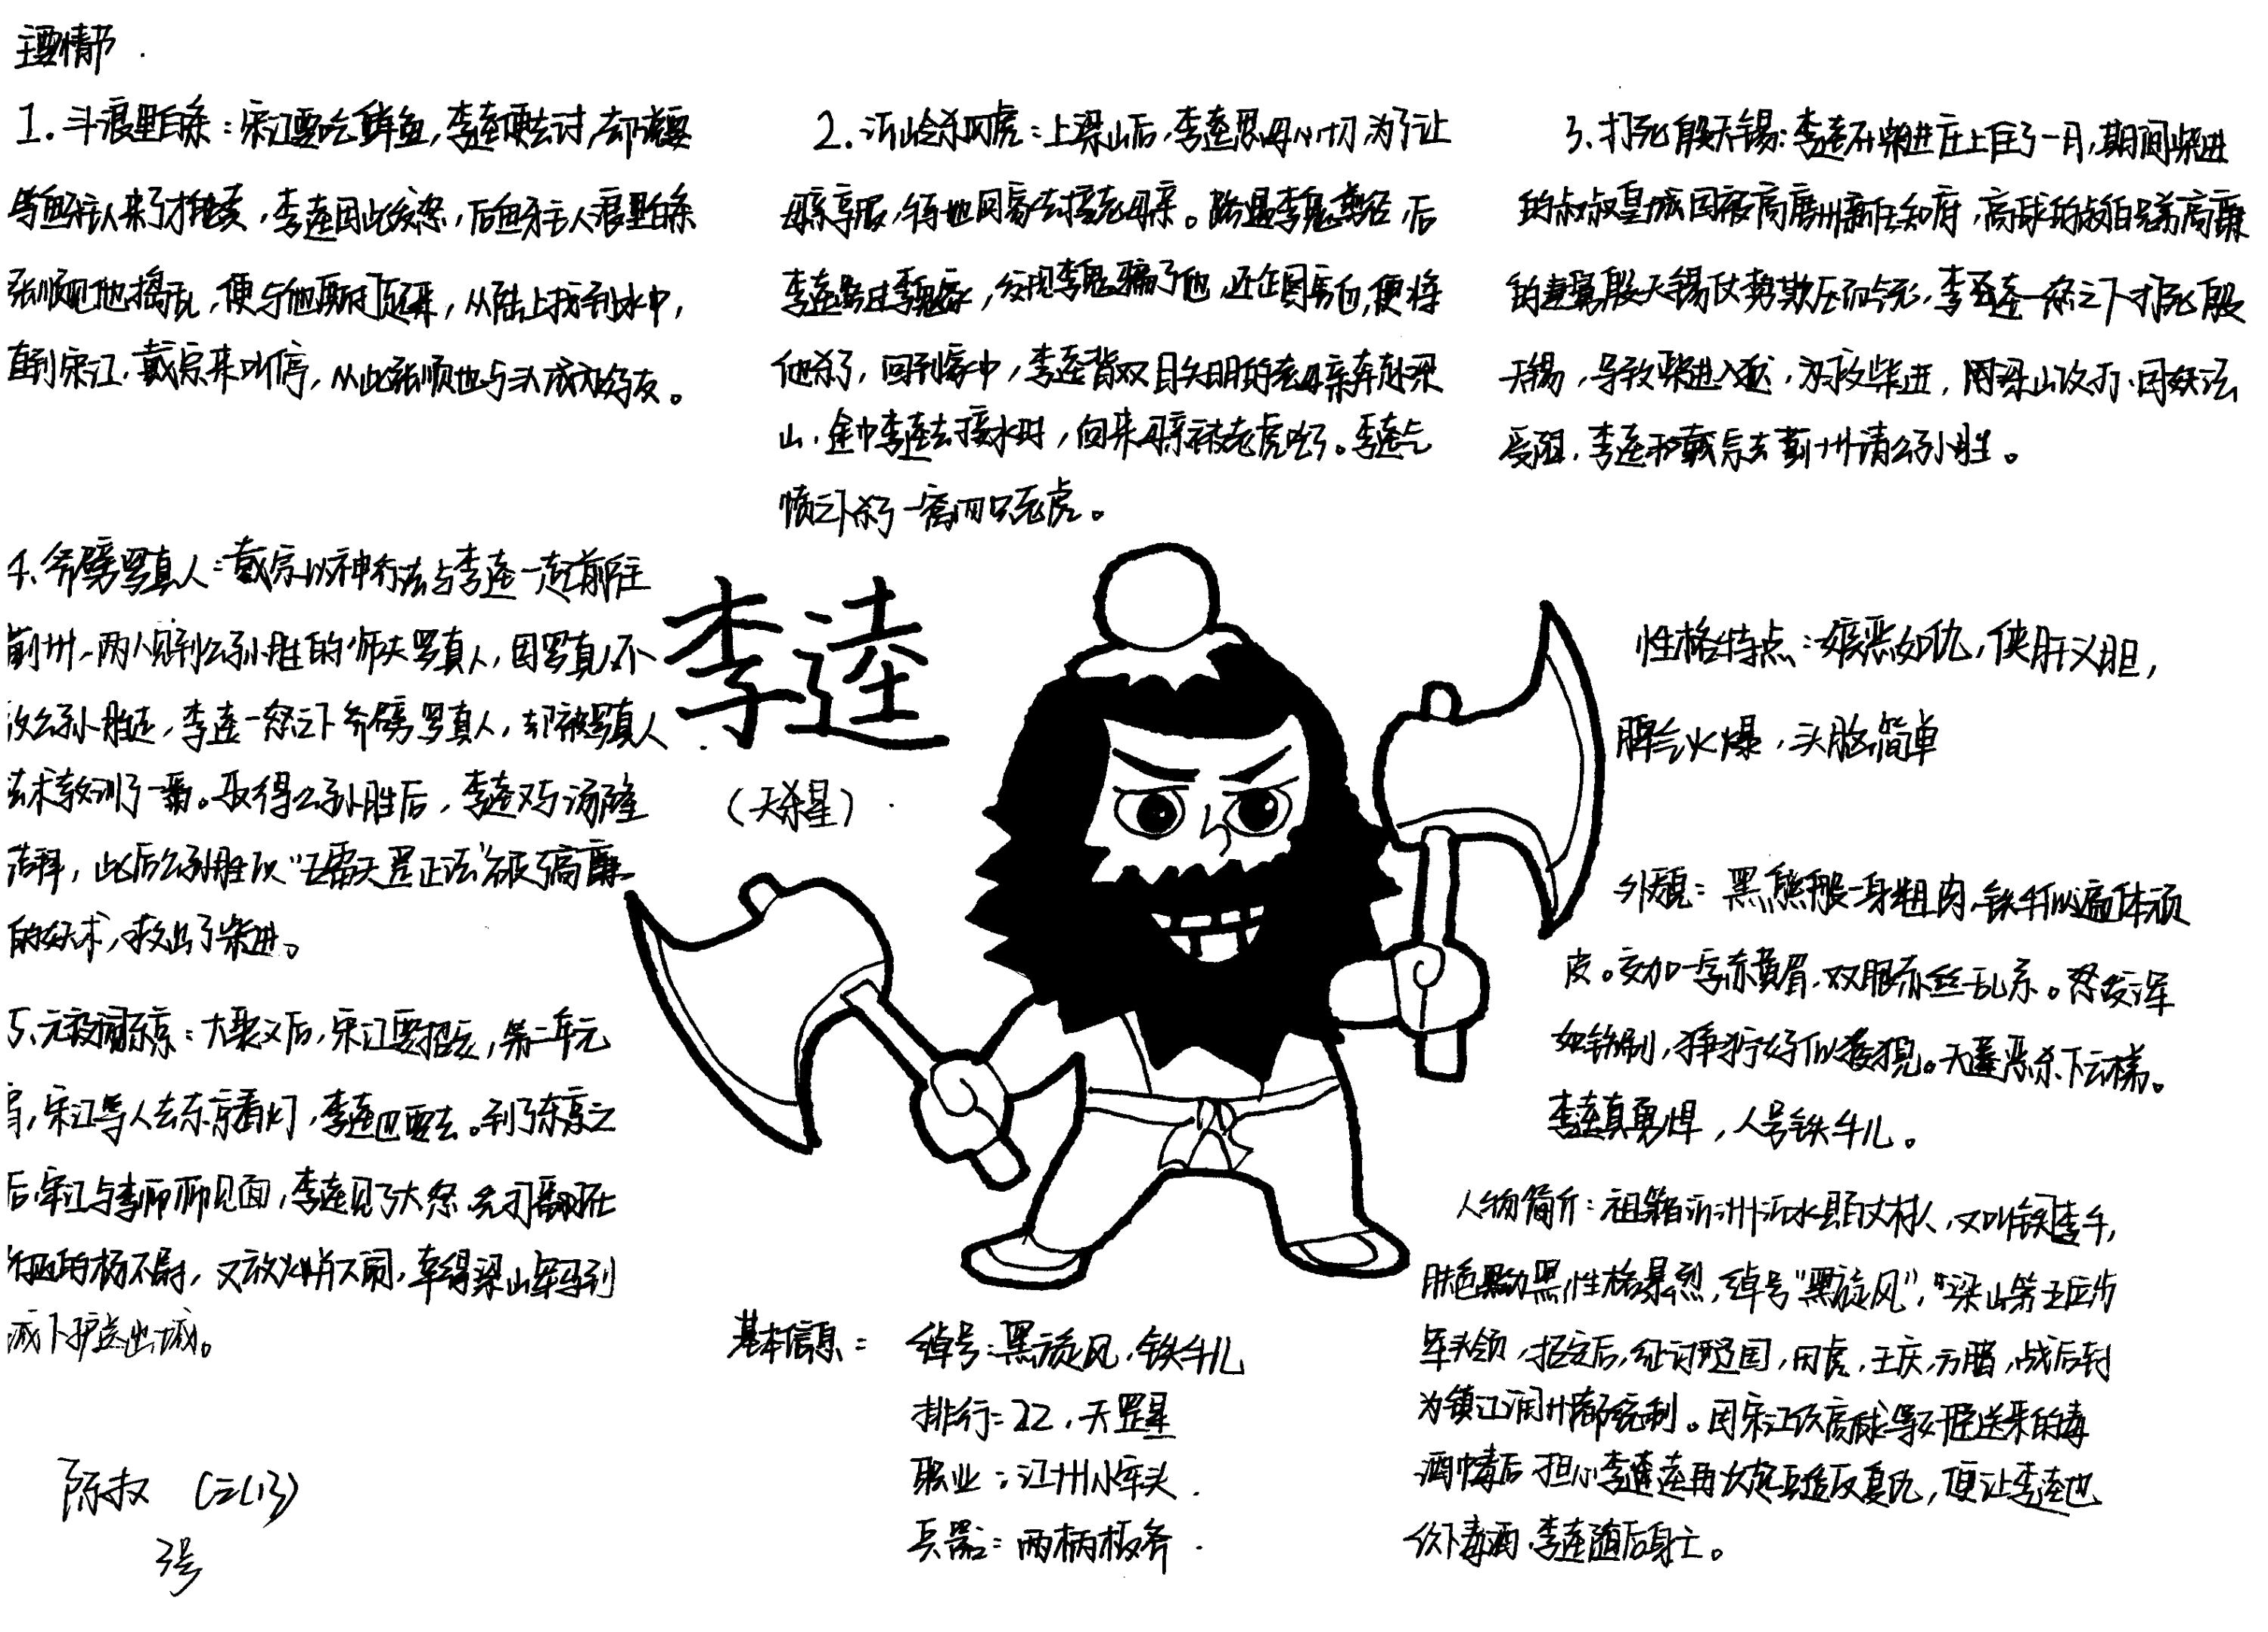 主要情节
1. 斗浪里白条：宋江要吃鲜鱼，李逵便去讨，却说要
等鱼牙主人来了才能卖，李逵因此发怒，后鱼牙主人浪里白条
张顺见他捣乱，便与他厮打起来，从陆上打到水中，
直到宋江、戴宗来叫停，从此张顺也与 成为好友。
2. 沂岭杀四虎：上梁山后，李逵思母心切，为了让
母亲享服，特地回家去接老母亲。路遇李鬼剪径，后
李逵路过李鬼家，发现李鬼骗了他，还 ，便将
他杀了，回到家中，李逵背双目失明的老母亲奔赴梁
山，途中李逵去接水时，回来母亲被老虎吃了。李逵气
愤之下杀了一窝四只老虎。
3、打死殷天锡：李逵在柴进庄上住了一月，期间柴进
的叔叔皇城因被高唐州新任知府，高球的叔伯兄弟高廉
的妻舅殷天锡仗势欺压而 ，李逵一怒之下打死殷
天锡，导致柴进入狱，为救柴进，用梁山攻打，因妖法
受阻，李逵和戴宗去蓟州请公孙胜。
4、斧劈罗真人：戴宗以神行法与李逵一起前往
蓟州，两人见到公孙胜的师夫罗真人，因罗真人不
放公孙胜走，李逵一怒之下斧劈罗真人，却被罗真人
法术教训了一番。取得公孙胜后，李逵又与汤隆
结拜，此后公孙胜以“五雷天罡正法”破了高廉
的妖术，救出了柴进。
李逵
（天杀星）
性格特点：嫉恶如仇，侠肝义胆，
脾气火爆，头脑简单
外貌：黑熊般一身粗肉，铁牛似遍体顽
皮。交加一字赤黄眉，双眼赤丝乱系。怒发浑
如铁刷，狰狞好似狻猊。天蓬恶杀下云梯。
李逵真勇悍，人号铁牛儿。
5、元夜闹东京：大聚义后，宋江要招安，第二年元
宵，宋江等人去东京看灯，李逵也要去。到了东京之
后，宋江与李师师见面，李逵见了大怒，先打翻
的杨太尉，又放火 大闹，幸得梁山军马到
城下护送出城。
人物简介：祖籍沂州沂水县百丈村人，又叫铁李牛，
肤色黝黑，性格暴烈，绰号“黑旋风”，梁山第五位步
军头领，招安后，征讨辽国，田虎，王庆，方腊，战后封
为镇江润州都统制。因宋江饮高球等奸臣送来的毒
酒中毒后，担心李逵再次起兵造反复仇，便让李逵也
饮下毒酒，李逵随后身亡。
基本信息：绰号：黑旋风，铁牛儿
排行：22，天罡星
职业：江州小牢头
兵器：两柄板斧
3号